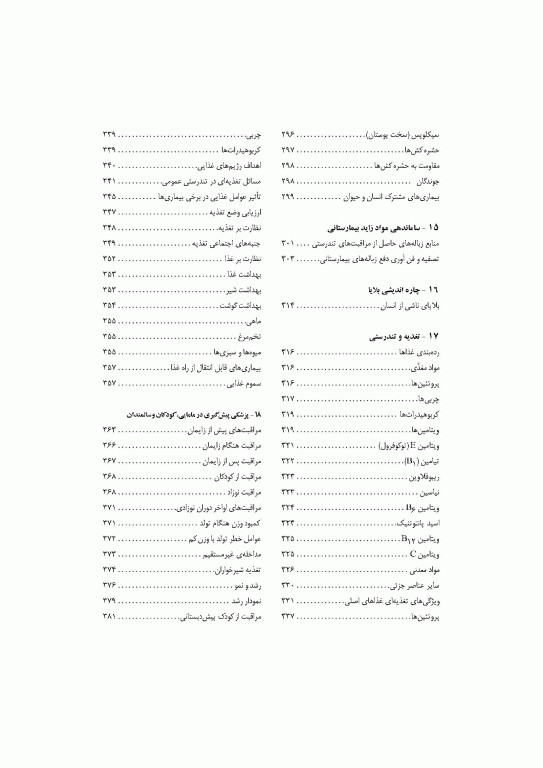 سیکلوپس (سخت پوستان).................... ۲۹۶
حشره‌کش‌ها................................ ۲۹۷
مقاومت به حشره‌کش‌ها ....................... ۲۹۸
جوندگان ................................ ۲۹۸
بیماری‌های مشترک انسان و حیوان ............ ۲۹۹
۱۵ - ساماندهی مواد زاید بیمارستانی
منابع زباله‌های حاصل از مراقبت‌های تندرستی .... ۳۰۱
تصفیه و فن آوری دفع زباله‌های بیمارستانی....... ۳۰۳
۱۶ - چاره اندیشی بلایا
بلایای ناشی از انسان........................ ۳۱۴
۱۷ - تغذیه و تندرستی
رده‌بندی غذاها ............................. ۳۱۶
مواد مغذّی................................. ۳۱۶
پروتئین‌ها................................. ۳۱۶
چربی‌ها................................... ۳۱۷
کربوهیدرات‌ها ............................. ۳۱۹
ویتامین‌ها................................. ۳۱۹
ویتامین E (توکوفرول) ....................... ۳۲۱
تیامین (B۱)............................... ۳۲۲
ریبوفلاوین ................................ ۳۲۳
نیاسین ................................... ۳۲۳
ویتامین B۶ ............................... ۳۲۴
اسید پانتوتنیک............................. ۳۲۴
ویتامین B۱۲............................... ۳۲۵
ویتامین C ................................ ۳۲۵
مواد معدنی ............................... ۳۲۶
سایر عناصر جزئی........................... ۳۳۰
ویژگی‌های تغذیه‌ای غذاهای اصلی.............. ۳۳۱
پروتئین‌ها................................. ۳۳۷
چربی..................................... ۳۳۹
کربوهیدرات‌ها ............................. ۳۳۹
اهداف رژیم‌های غذایی....................... ۳۴۰
مسائل تغذیه‌ای در تندرستی عمومی............. ۳۴۱
تأثیر عوامل غذایی در برخی بیماری‌ها ........... ۳۴۵
ارزیابی وضع تغذیه .......................... ۳۴۷
نظارت بر تغذیه............................. ۳۴۸
جنبه‌های اجتماعی تغذیه ..................... ۳۴۹
نظارت بر غذا .............................. ۳۵۲
بهداشت غذا ............................... ۳۵۳
بهداشت شیر............................... ۳۵۳
بهداشت گوشت............................. ۳۵۴
ماهی..................................... ۳۵۵
تخم‌مرغ .................................. ۳۵۵
میوه‌ها و سبزی‌ها ........................... ۳۵۵
بیماری‌های قابل انتقال از راه غذا............... ۳۵۷
سموم غذایی............................... ۳۵۷
۱۸ - پزشکی پیش‌گیری در مامایی، کودکان و سالمندان
مراقبت‌های پیش از زایمان.................... ۳۶۳
مراقبت هنگام زایمان ........................ ۳۶۶
مراقبت پس از زایمان ........................ ۳۶۷
مراقبت از کودکان .......................... ۳۶۸
مراقبت نوزاد ............................... ۳۶۸
مراقبت‌های اواخر دوران نوزادی................ ۳۷۱
کمبود وزن هنگام تولد ....................... ۳۷۱
عوامل خطر تولد با وزن کم.................... ۳۷۲
مداخله‌ی غیرمستقیم ........................ ۳۷۳
تغذیه شیرخواران............................ ۳۷۴
رشد و نمو ................................. ۳۷۶
نمودار رشد ................................ ۳۷۹
مراقبت از کودک پیش‌دبستانی................. ۳۸۱